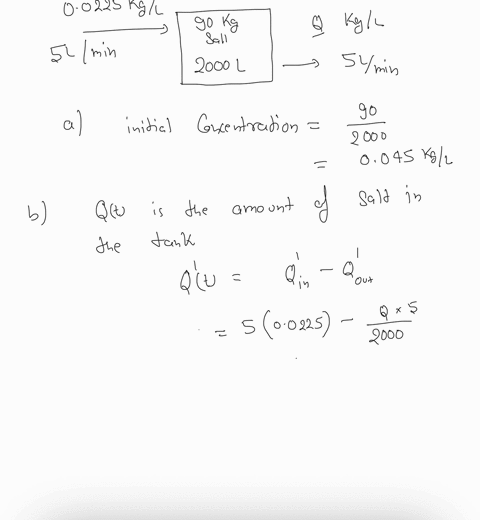 0.0225 Kg/L
5L/min
90 Kg
Salt
2000 L
Q Kg/L
5L/min
a) initial Concentration = 90/2000
= 0.045 Kg/L
b) Q(t) is the amount of salt in
the tank
Q'(t) = Q'in - Q'out
= 5(0.0225) - Q × 5/2000